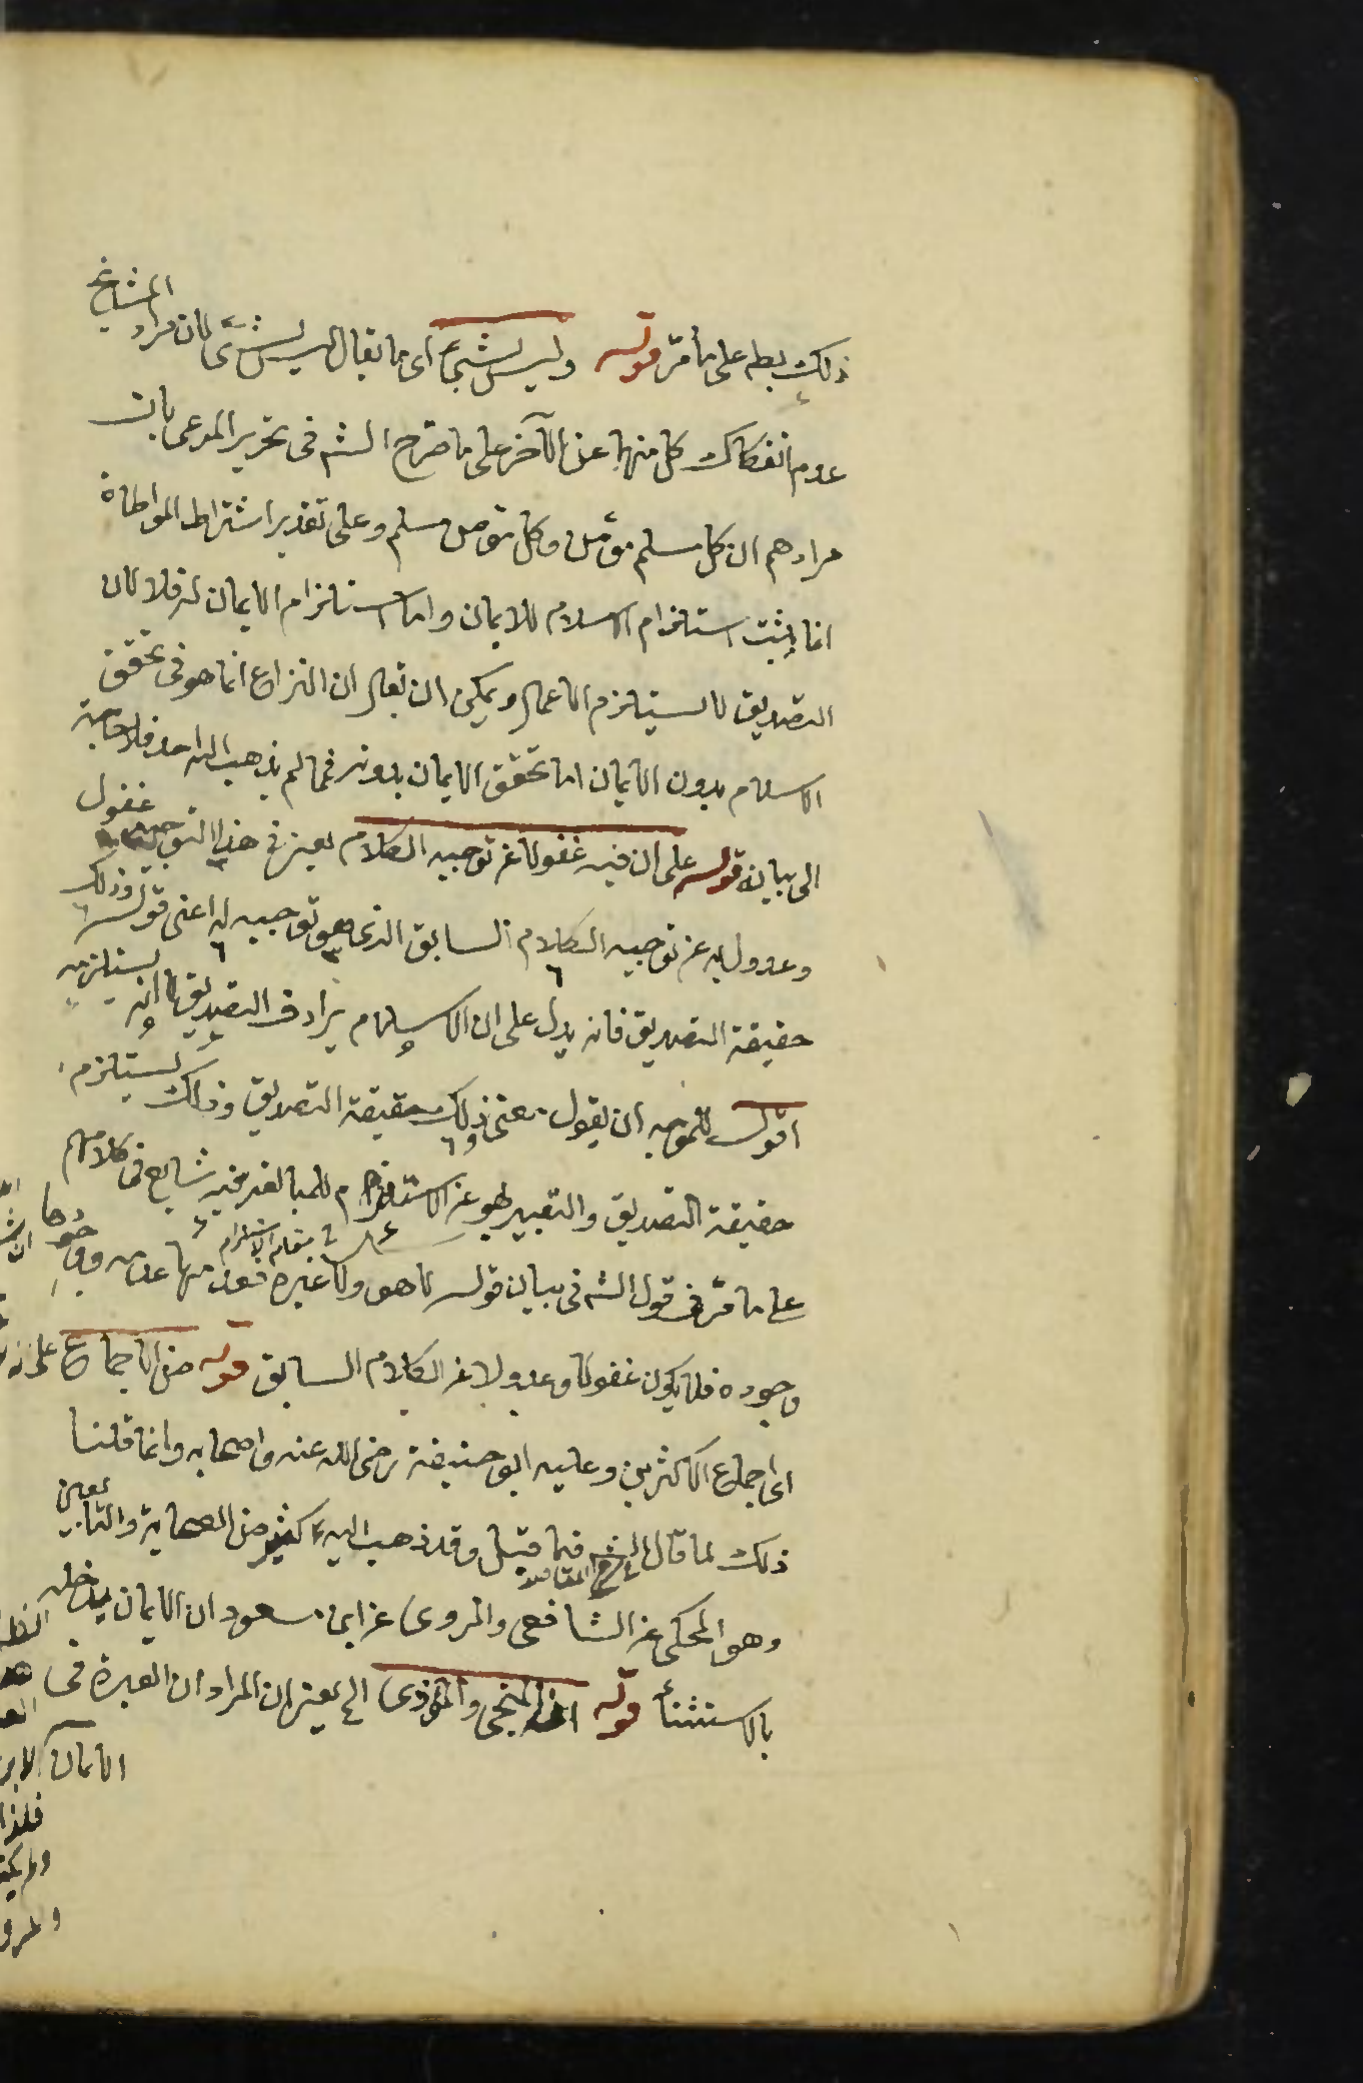 ذلك يطلع على ما مر قوله وليس بشيء اى ما يقال ليس بشيء لان مراد المشايخ
عدم انفكاك كل منهما عن الآخر على ما صرح الشه فى تحرير المدعى بان
مرادهم ان كل مسلم مؤمن وكل مؤمن مسلم وعلى تقدير اشتراط المواطاة
انما يثبت استلزام الاسلام للايمان واما استلزام الايمان له فلا لان
التصديق لا يستلزم الاعمال ويمكن ان يقال ان النزاع انما هو فى تحقق
الاسلام بدون الايمان اما تحقق الايمان بدونه فمما لم يذهب اليه احد فلا حاجة
الى بيانه قوله على ان فيه غفولا عن توجيه الكلام يعنى فى هذا التوجيه غفول
وعدول له عن توجيه الكلام السابق الذى هو توجيه له اعنى قوله وذلك
حقيقة التصديق فانه يدل على ان الاسلام يرادف التصديق لا انه يستلزمه
اقول للموجه ان يقول معنى وذلك حقيقة التصديق وذلك يستلزم
حقيقة التصديق والتعبير بهو عن الاستلزام للمبالغة فيه شايع فى كلامهم
على ما مر فى قول الشه فى بيان قوله لا هو ولا غيره فى مقام الاستلزام فعدمها عدمه ووجودها
وجوده فلا يكون غفولا وعدولا عن الكلام السابق قوله من الاجماع على
اى اجماع الاكثرين وعليه ابو حنيفة رضى الله عنه واصحابه وانما قلنا
ذلك لما قال الشه فى شرح المقاصد فيما قبل وقد ذهب اليه كثير من الصحابة والتابعين
وهو المحكى عن الشافعى والمروى عن ابن مسعود ان الايمان يدخله
بالاستثناء قوله المنجى والمؤذى الخ يعنى ان المراد ان العبرة فى
الايمان